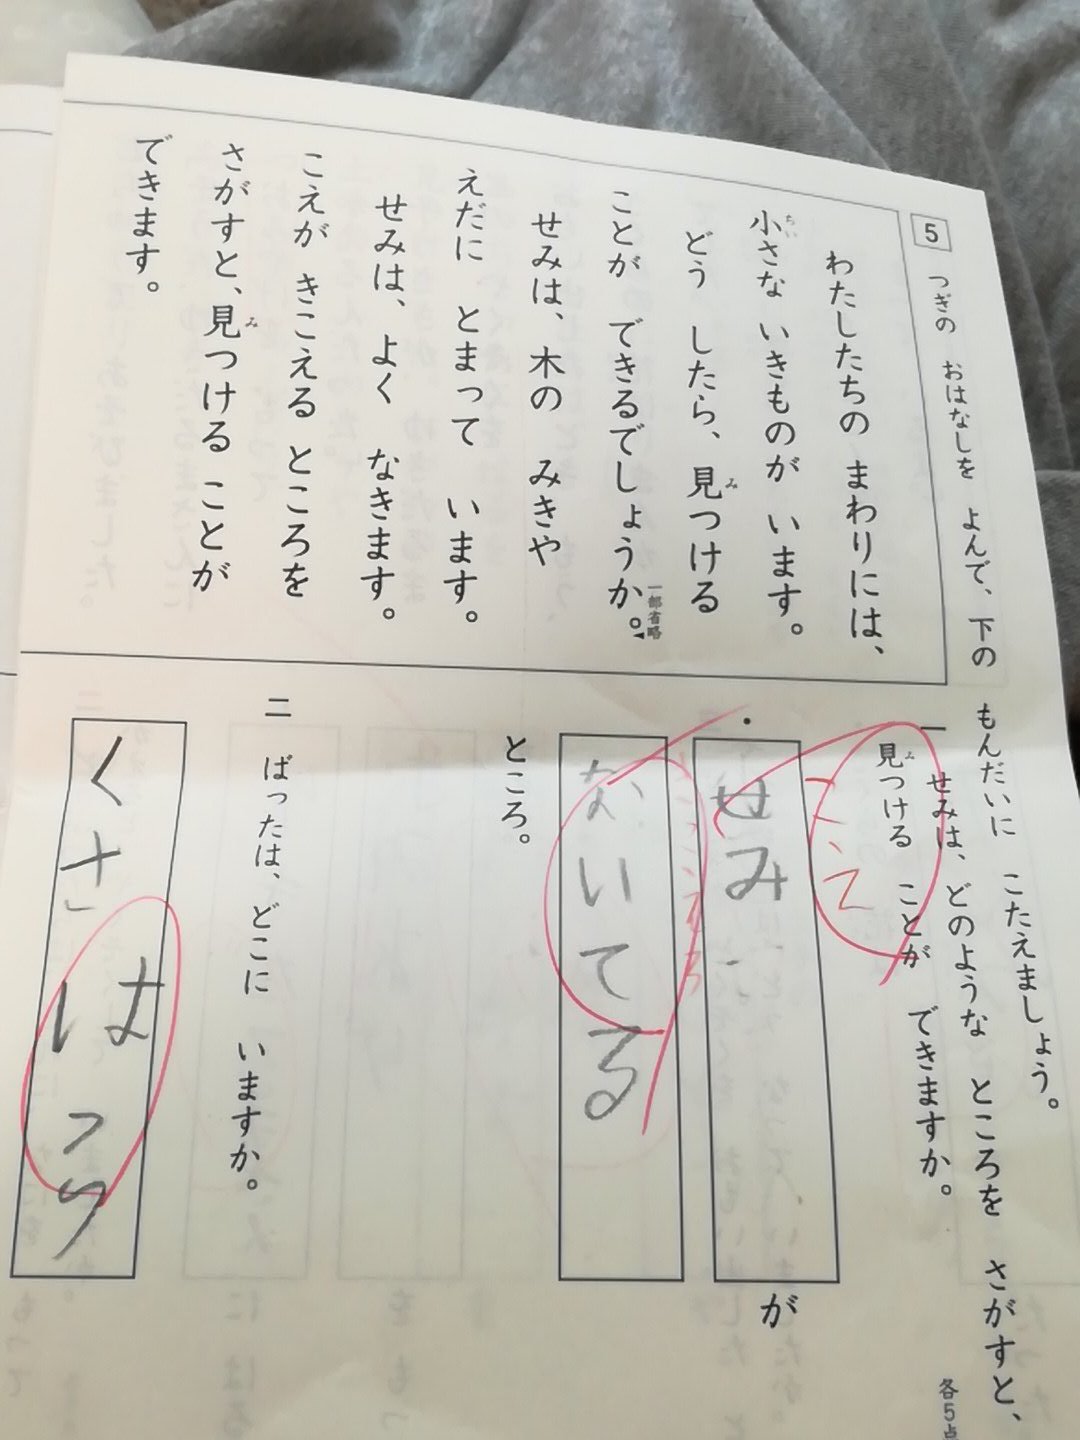 5 つぎの おはなしを よんで、下の もんだいに こたえましょう。
わたしたちの まわりには、
小さな いきものが います。
どう したら、見つける
ことが できるでしょうか。
一部省略
せみは、木の みきや
えだに とまって います。
せみは、よく なきます。
こえが きこえる ところを
さがすと、見つける ことが
できます。
各5点
一 せみは、どのような ところを さがすと、
見つける ことが できますか。
こえ
せみ
が
きこえる
ないてる
ところ。
二 ばったは、どこに いますか。
くさはっら